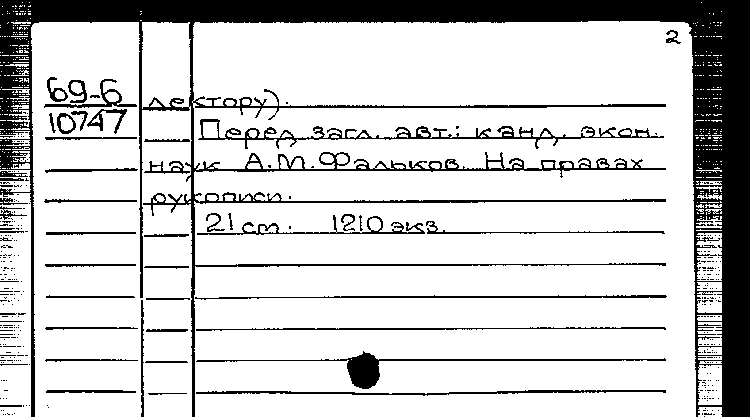 2
69-6 лектору).
10747 Перед загл. авт.: канд. экон.
наук А.М.Фальков. На правах
рукописи.
21 cm. 1210 экз.